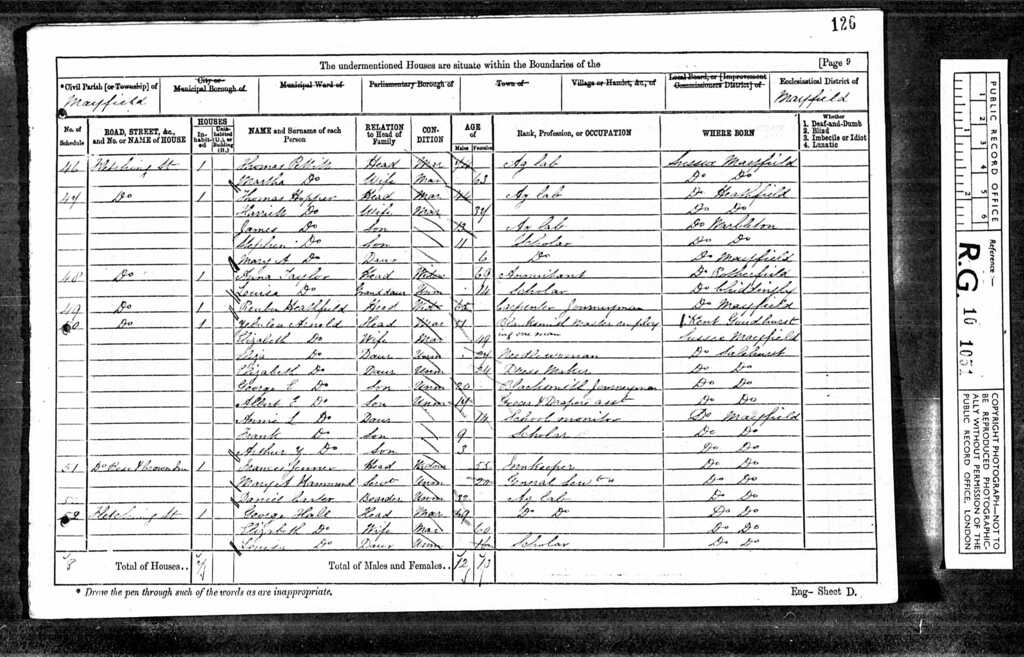 126
The undermentioned Houses are situate within the Boundaries of the [Page 9
* Civil Parish [or Township] of Mayfield
City or Municipal Borough of
Municipal Ward of
Parliamentary Borough of
Town of
Village or Hamlet, &c., of
Local Board, or [Improvement Commissioners District] of
Ecclesiastical District of Mayfield
No. of Schedule
ROAD, STREET, &c., and No. or NAME of HOUSE
HOUSES
Inhabited
Uninhabited (U.), or Building (B.)
NAME and Surname of each Person
RELATION to Head of Family
CONDITION
AGE of
Males
Females
Rank, Profession, or OCCUPATION
WHERE BORN
Whether
1. Deaf-and-Dumb
2. Blind
3. Imbecile or Idiot
4. Lunatic
46 Fletching St 1 Thomas Head Mar Ag lab Sussex Mayfield
Martha Do Wife Mar 63 Do Do
47 Do 1 Thomas Hopper Head Mar 44 Ag lab Do Heathfield
Harriett Do Wife Mar 37 Do Do
James Do Son 13 Ag lab Do Warbleton
Stephen Do Son 11 Scholar Do Do
Mary A Do Daur 6 Do Do Mayfield
48 Do 1 Taylor Head Widow 69 Annuitant Do Rotherfield
Louisa Do Grandaur 14 Scholar Do Chiddingly
49 Do 1 Reuben Heathfield Head Carpenter Journeyman Do Mayfield
50 Do 1 Arnold Head Mar 51 Blacksmith Master employing one man Kent Goudhurst
Elizabeth Do Wife Mar 49 Sussex Mayfield
Eliza Do Daur Unm 27 Needlewoman Do Salehurst
Elizabeth Do Daur Unm 24 Dress Maker Do Do
George E Do Son Unm 20 Blacksmith Journeyman Do Do
Albert E Do Son Unm Grocer & Drapers asst Do Do
Annie L Do Daur 14 School monitor Do Mayfield
Frank Do Son 9 Scholar Do Do
Arthur Y Do Son 3 Do Do
51 Do Rose & Crown Inn 1 Frances Jenner Head Widow 55 Innkeeper Do Do
Mary A Hammond Servt Unm 20 General Servt Do Do
Daniel Boarder Unm 32 Ag lab Do Do
52 Fletching St 1 George Hall Head Mar 69 Do Do Do Do
Elizabeth Do Wife Mar 60 Do Do
Louisa Do Daur Unm Scholar Do Do
Total of Houses.. Total of Males and Females.. 12 13
* Draw the pen through such of the words as are inappropriate.
Eng- Sheet D.
PUBLIC RECORD OFFICE
1 2 3 4 5 6
1 2
Reference:-
R.G. 10 1054
COPYRIGHT PHOTOGRAPH—NOT TO BE REPRODUCED PHOTOGRAPHICALLY WITHOUT PERMISSION OF THE PUBLIC RECORD OFFICE, LONDON